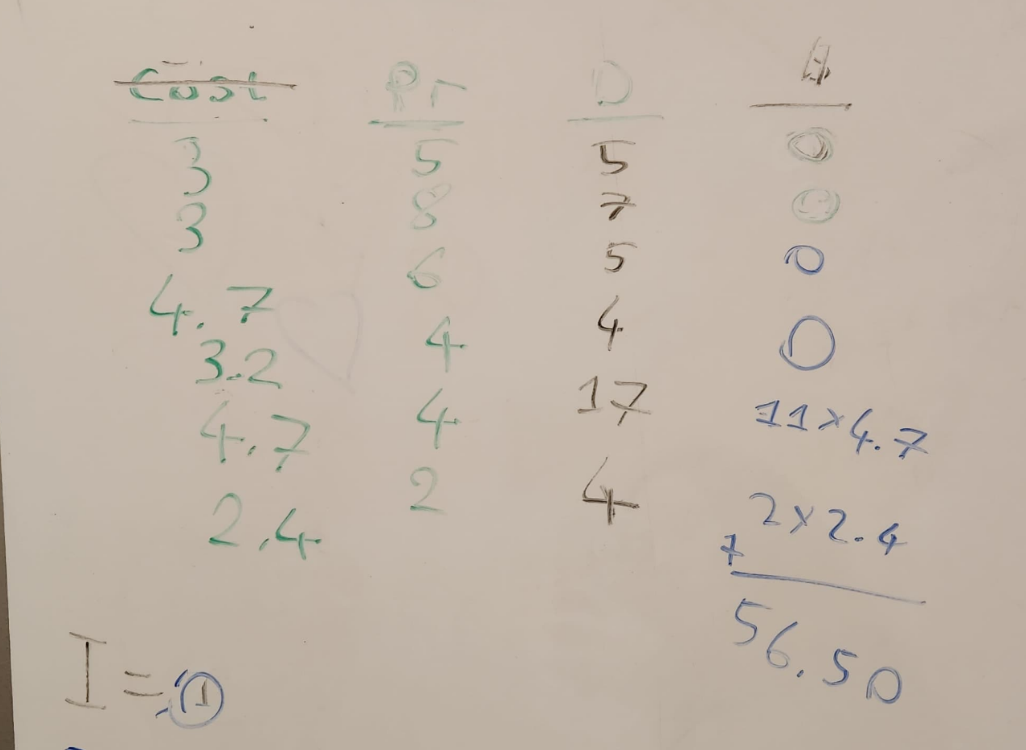 Cost Pr D A
3 5 5 0
3 8 7 0
4.7 6 5 0
3.2 4 4 0
4.7 4 17 11×4.7
2.4 2 4 2×2.4
+
56.50
I = 1